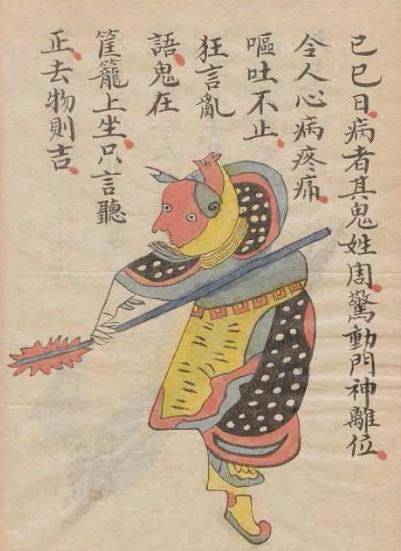 己巳日病者其鬼姓周驚動門神離位
令人心病疼痛
嘔吐不止
狂言亂
語鬼在
筐籠上坐只言聽
正去物則吉